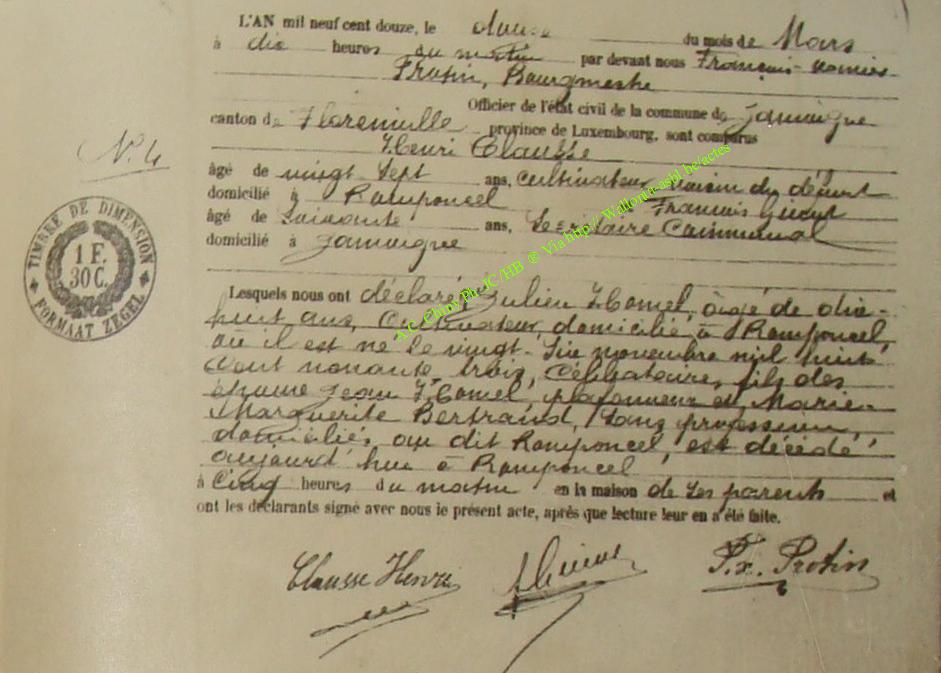 L'AN mil neuf cent douze, le douze du mois de Mars
à dix heures du matin par devant nous François-Xavier
Protin, Bourgmestre
Officier de l'état civil de la commune de Jamoigne
canton de Florenville province de Luxembourg, sont comparus
Henri Clausse
âgé de vingt sept ans, cultivateur voisin du défunt
domicilié à Romponcel François
âgé de soixante ans, Secrétaire Communal
domicilié à Jamoigne
N° 4
TIMBRE DE DIMENSION
1 F.
30 C.
FORMAAT ZEGEL
Lesquels nous ont déclaré que Julien Hamel, âgé de dix-
huit ans, Cultivateur, domicilié à Romponcel,
où il est né le vingt-six novembre mil huit
cent nonante trois, Célibataire, fils des
époux Jean Hamel, plafonneur et Marie-
Marguerite Bertrand, sans profession,
domiciliés au dit Romponcel, est décédé
aujourd'hui à Romponcel
à Cinq heures du matin en la maison de ses parents et
ont les déclarants signé avec nous le présent acte, après que lecture leur en a été faite.
Clausse Henri
Fx. Protin
A.C. Chiny Ph. JC/HB ® Via http://Wallonia-asbl.be/actes